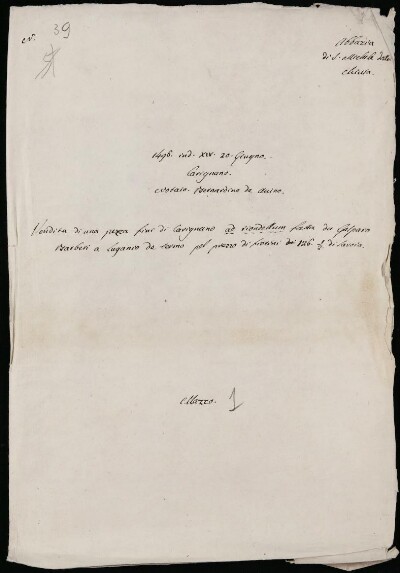 N. 39
Abbazia
di S. Michele della
Chiusa.
1496. ind. XIV. 20. Giugno.
Carignano.
Notaio. Bernardino de
Vendita di una pezza fini di Carignano ad fatta da Gasparo
Barberi a Luganeo de pel prezzo di fiorini 126. di Savoia.
Mazzo. 1